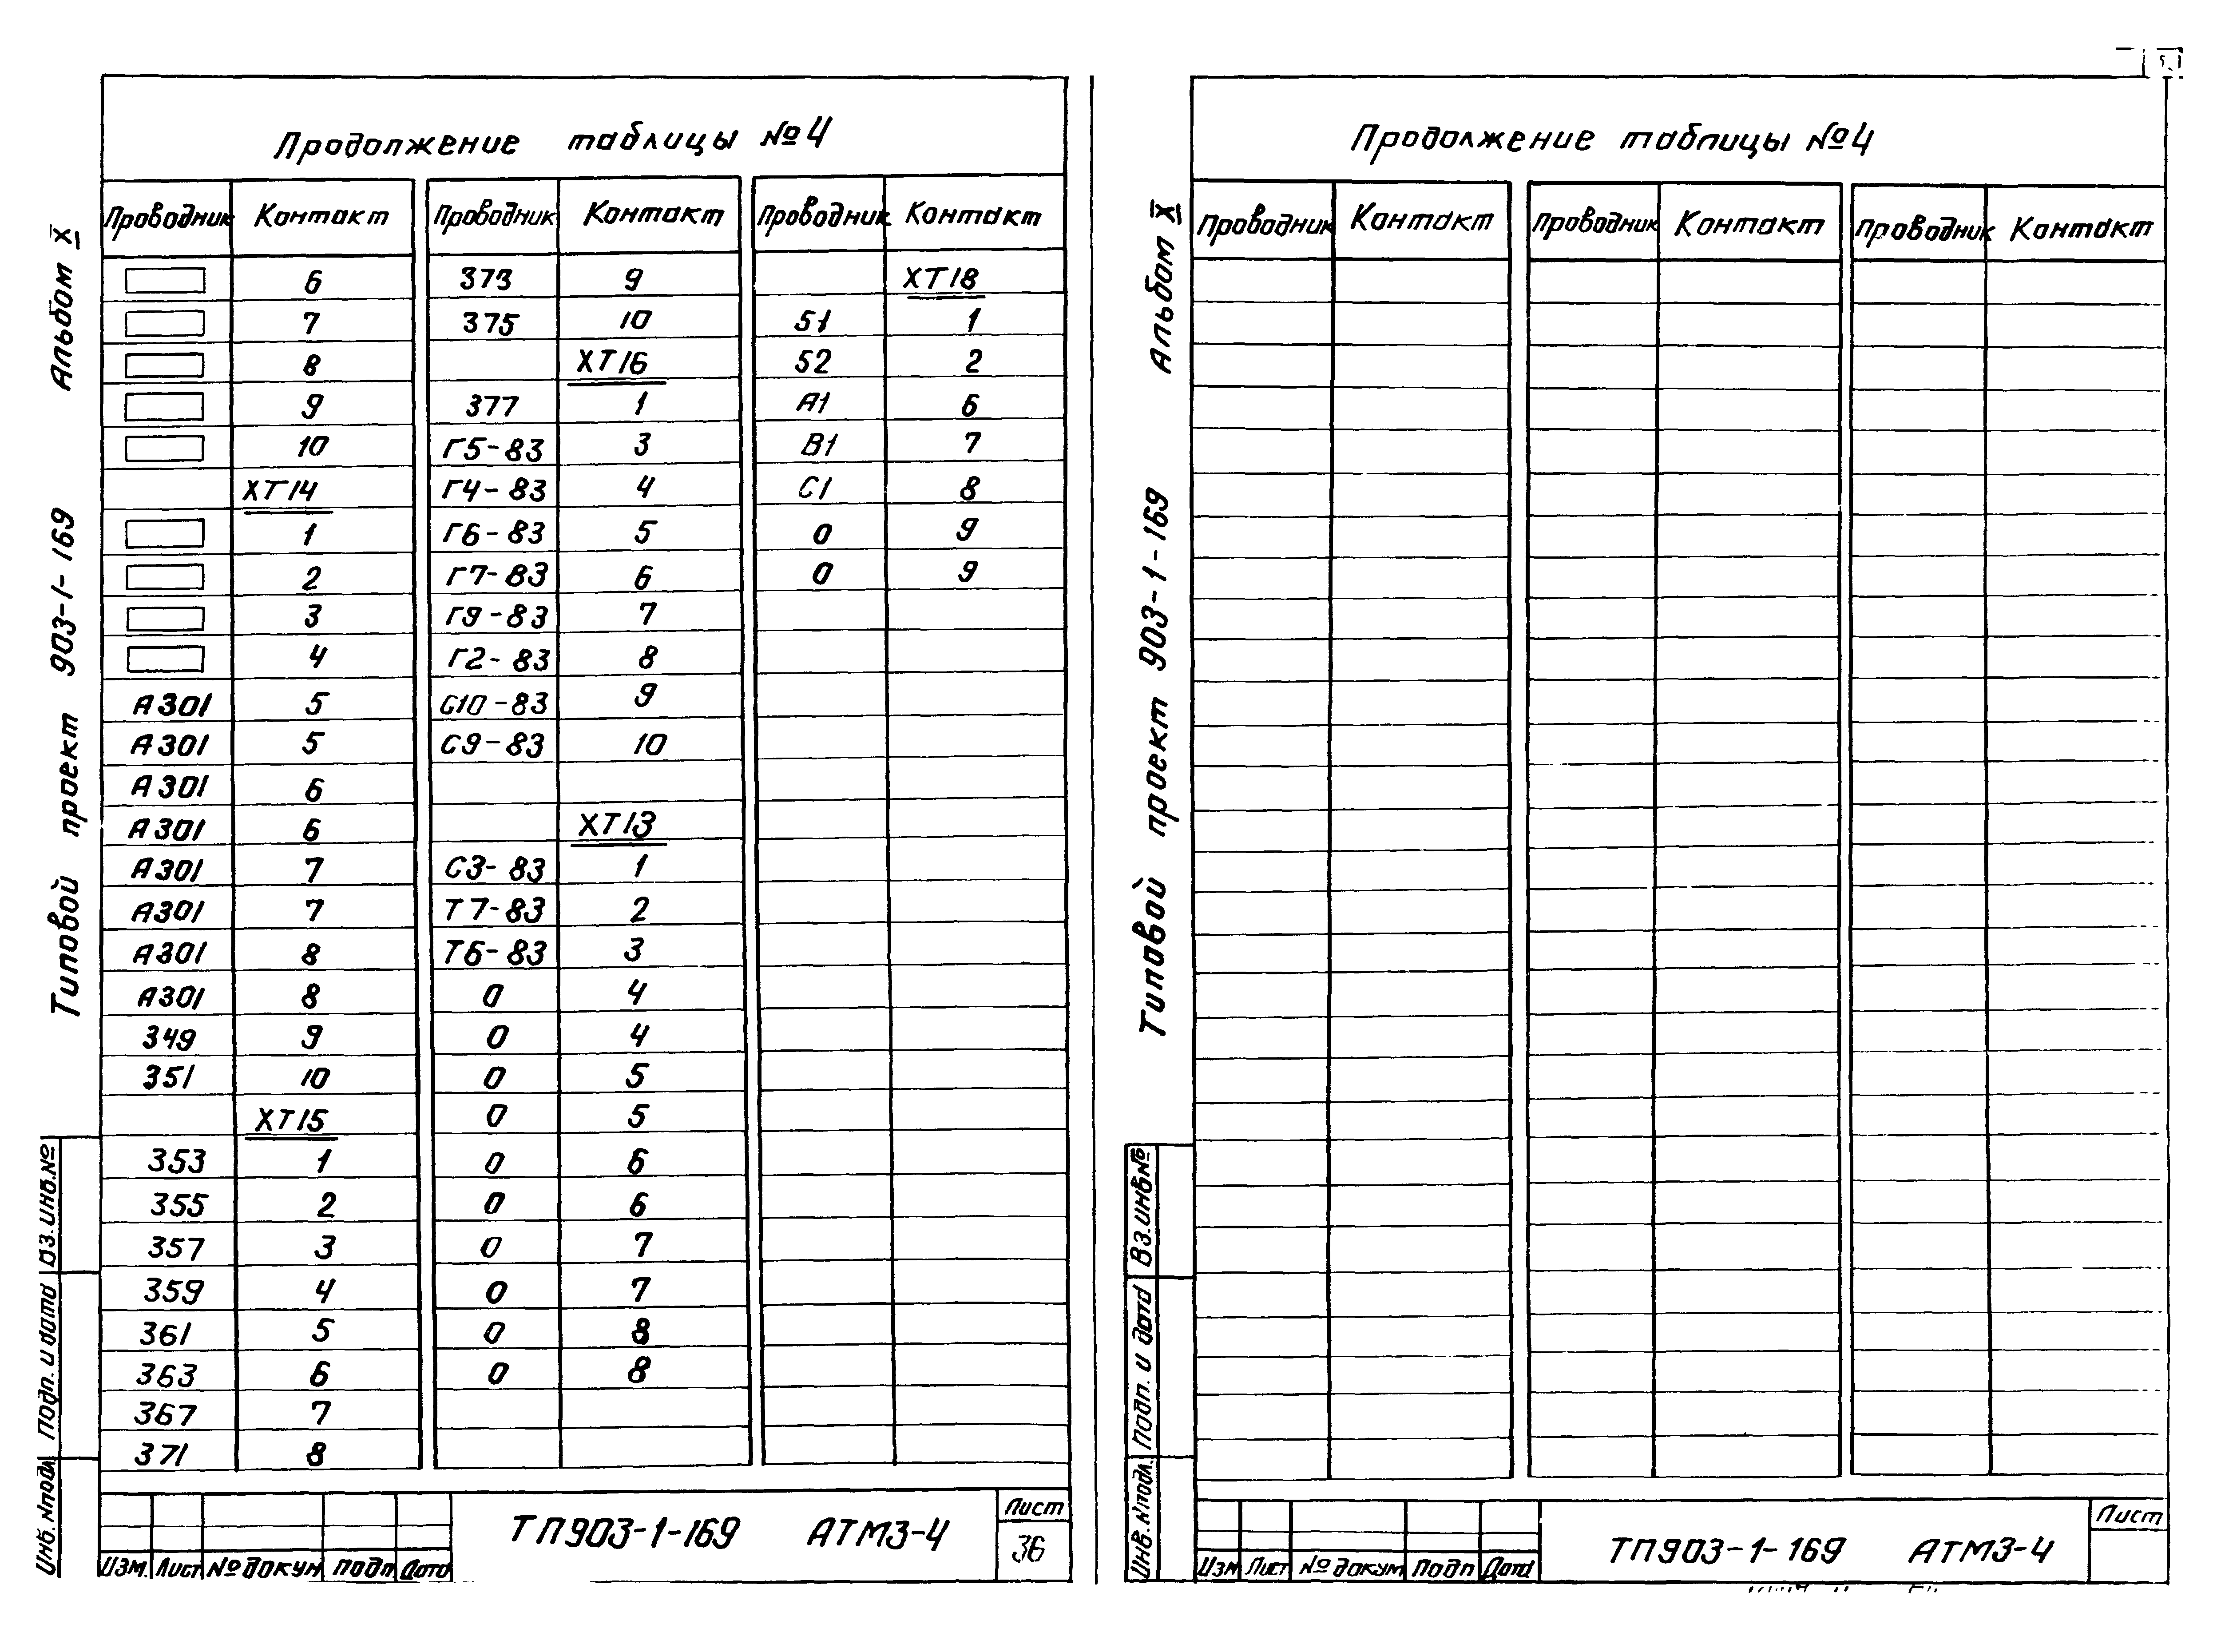 Продолжение таблицы №4
Проводник Контакт Проводник Контакт Проводник Контакт
6 373 9 ХТ18
7 375 10 51 1
8 ХТ16 52 2
9 377 1 А1 6
10 Г5-83 3 В1 7
ХТ14 Г4-83 4 С1 8
1 Г6-83 5 0 9
2 Г7-83 6 0 9
3 Г9-83 7
4 Г2-83 8
А301 5 С10-83 9
А301 5 С9-83 10
А301 6
А301 6 ХТ13
А301 7 С3-83 1
А301 7 Т7-83 2
А301 8 Т6-83 3
А301 8 0 4
349 9 0 4
351 10 0 5
ХТ15 0 5
353 1 0 6
355 2 0 6
357 3 0 7
359 4 0 7
361 5 0 8
363 6 0 8
367 7
371 8
Типовой проект 903-1-169 Альбом X
Инв.№подл. Подп. и дата Вз.инв.№
Изм. Лист № докум Подп Дата
ТП903-1-169 АТМ3-4
Лист
36
Продолжение таблицы №4
Проводник Контакт Проводник Контакт Проводник Контакт
Типовой проект 903-1-169 Альбом X
Инв.№подл. Подп. и дата Вз.инв№
Изм Лист № докум Подп Дата
ТП903-1-169 АТМ3-4
Лист